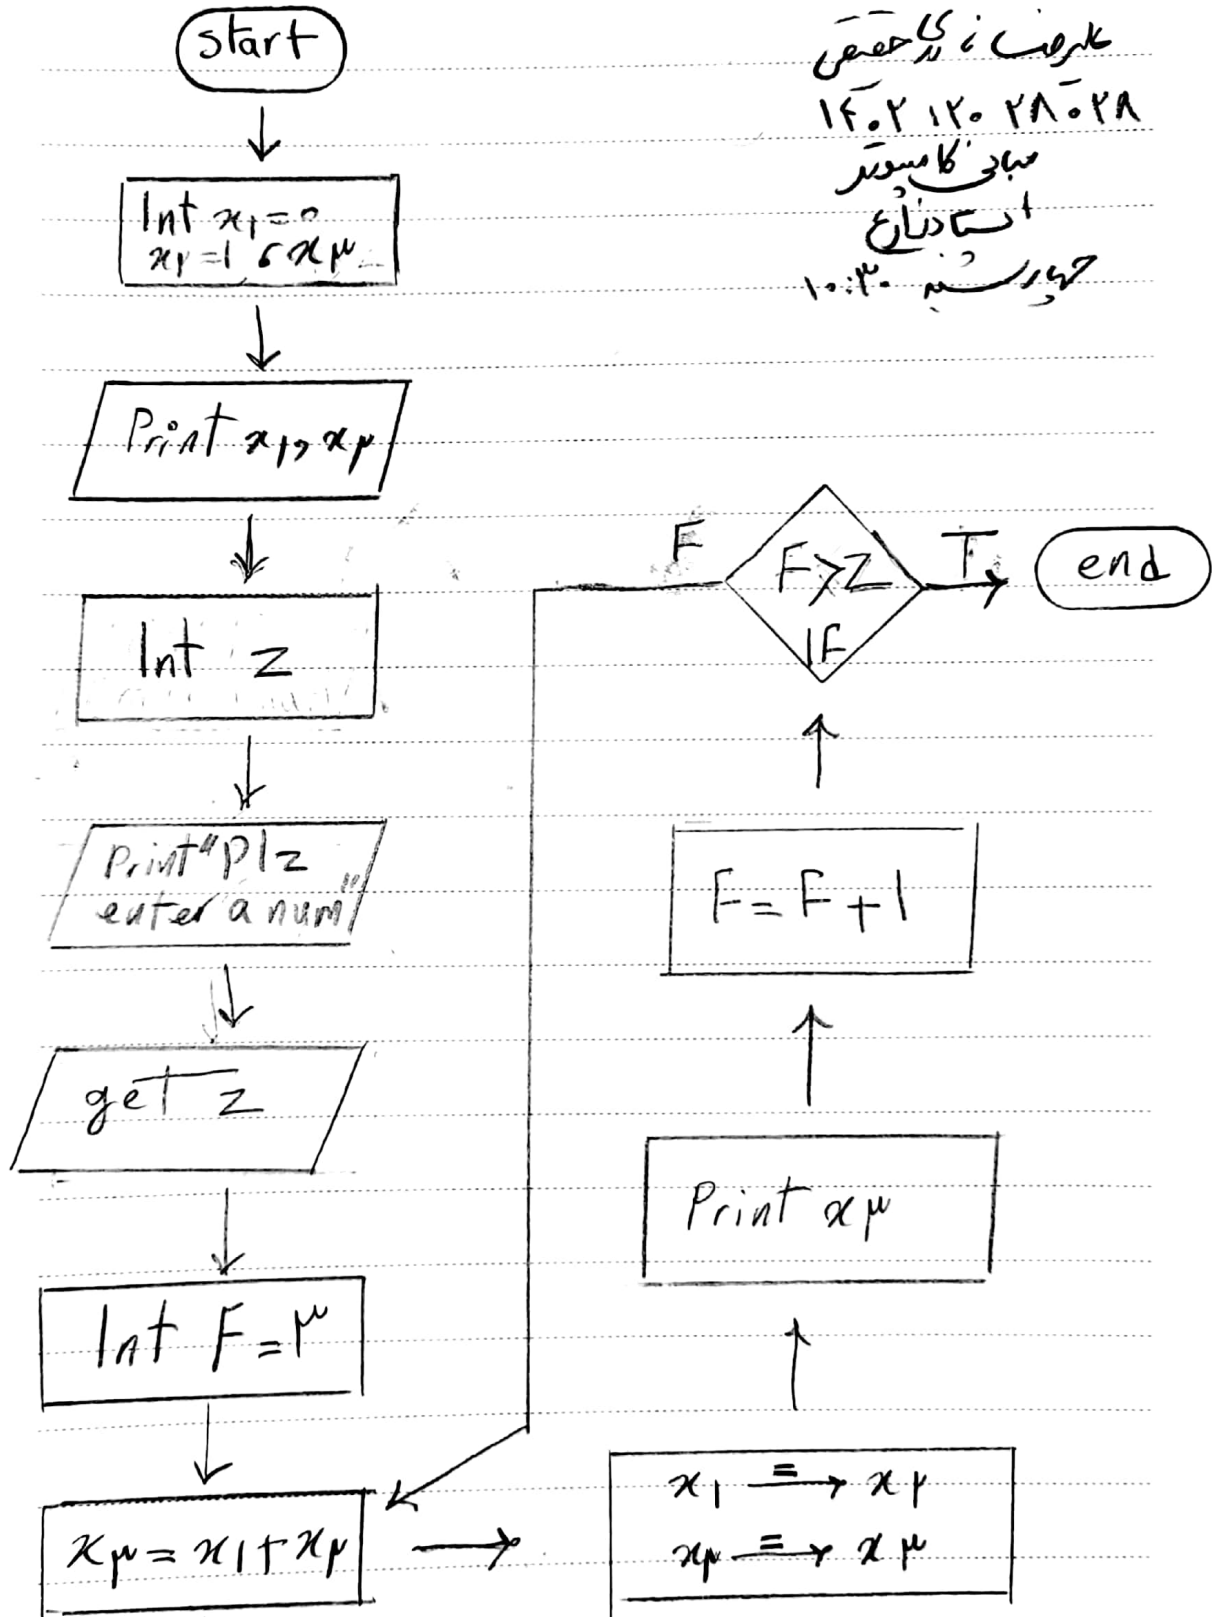 start
علیرضا
۱۴۰۲۱۲۰۲۸۰۲۸
مبانی کامپیوتر
استاد زارع
چهارشنبه ۱۰:۳۰
Int x۱=۰
x۲=۱ , x۳
Print x۱, x۲
Int z
Print "Plz
enter a num"
get z
Int F=۳
x۳ = x۱ + x۲
x۱ =→ x۲
x۲ =→ x۳
Print x۳
F = F + 1
F>Z
IF
F
T
end